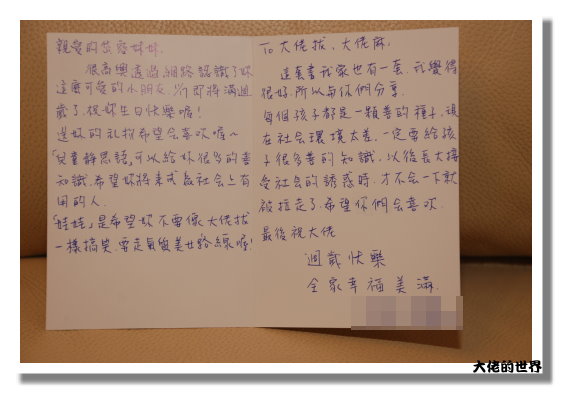 親愛的恩慈妹妹:
很高興透過網路認識了妳
這麼可愛的小朋友,妳即將滿週
歲了,祝妳生日快樂喔!
送妳的礼物希望会喜欢喔~
「兒童靜思語」可以給妳很多的善
知識,希望妳將來成為社会上有
用的人.
「娃娃」是希望妳不要像大佬拔
一樣搞笑,要走氣質美女路線喔!
To 大佬拔、大佬麻:
這套書我家也有一套,我覺得
很好,所以與你們分享.
每個孩子都是一顆善的種子,現
在社会環境太差,一定要給孩
子很多善的知識,以後長大接
受社会的誘惑時,才不会一下就
被拉走了.希望你們会喜欢.
最後祝大佬
週歲快樂
全家幸福美滿.
大佬的世界